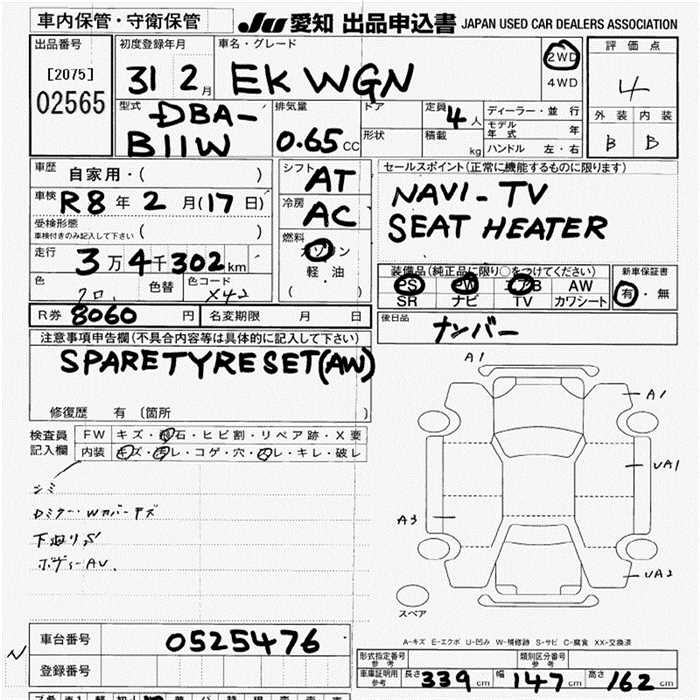 車内保管・守衛保管
JU 愛知 出品申込書 JAPAN USED CAR DEALERS ASSOCIATION
出品番号
[2075]
02565
初度登録年月
31 2月
車名・グレード
EK WGN
2WD
4WD
評価点
4
外装 内装
B B
型式
DBA-
B11W
排気量
0.65 CC
ドア
形状
定員 4人
積載 kg
ディーラー・並行
モデル年式 年
ハンドル 左・右
車歴
自家用・( )
車検 R8年 2月(17日)
受検形態
車検付きのみ記入して下さい ( )
走行 3万4千302km
色 クロ 色替 色コード X42
シフト AT
冷房 AC
燃料 ガソリン
軽油
( )
セールスポイント(正常に機能するものに限ります)
NAVI-TV
SEAT HEATER
装備品(純正品に限り○をつけてください)
PS PW エアB AW
SR ナビ TV カワシート
新車保証書
有・無
R券 8060円 名変期限 月 日
後日品 ナンバー
注意事項申告欄(不具合内容等は具体的に記入して下さい)
SPARETYRESET(AW)
修復歴 有 (箇所 )
検査員記入欄
FW キズ・飛石・ヒビ割・リペア跡・X要
内装 キズ・汚レ・コゲ・穴・スレ・キレ・破レ
シミ
Dミラー・Wカバーキズ
下廻りS
ボディーAU.
A1
A1
UA1
A3
UA2
スペア
A-キズ E-エクボ U-凹み W-補修跡 S-サビ C-腐食 XX-交換済
車台番号 0525476
登録番号
N
形式指定番号 参考
類別区分番号 参考
車庫証明用 参考 長さ 339cm 幅 147cm 高さ 162cm